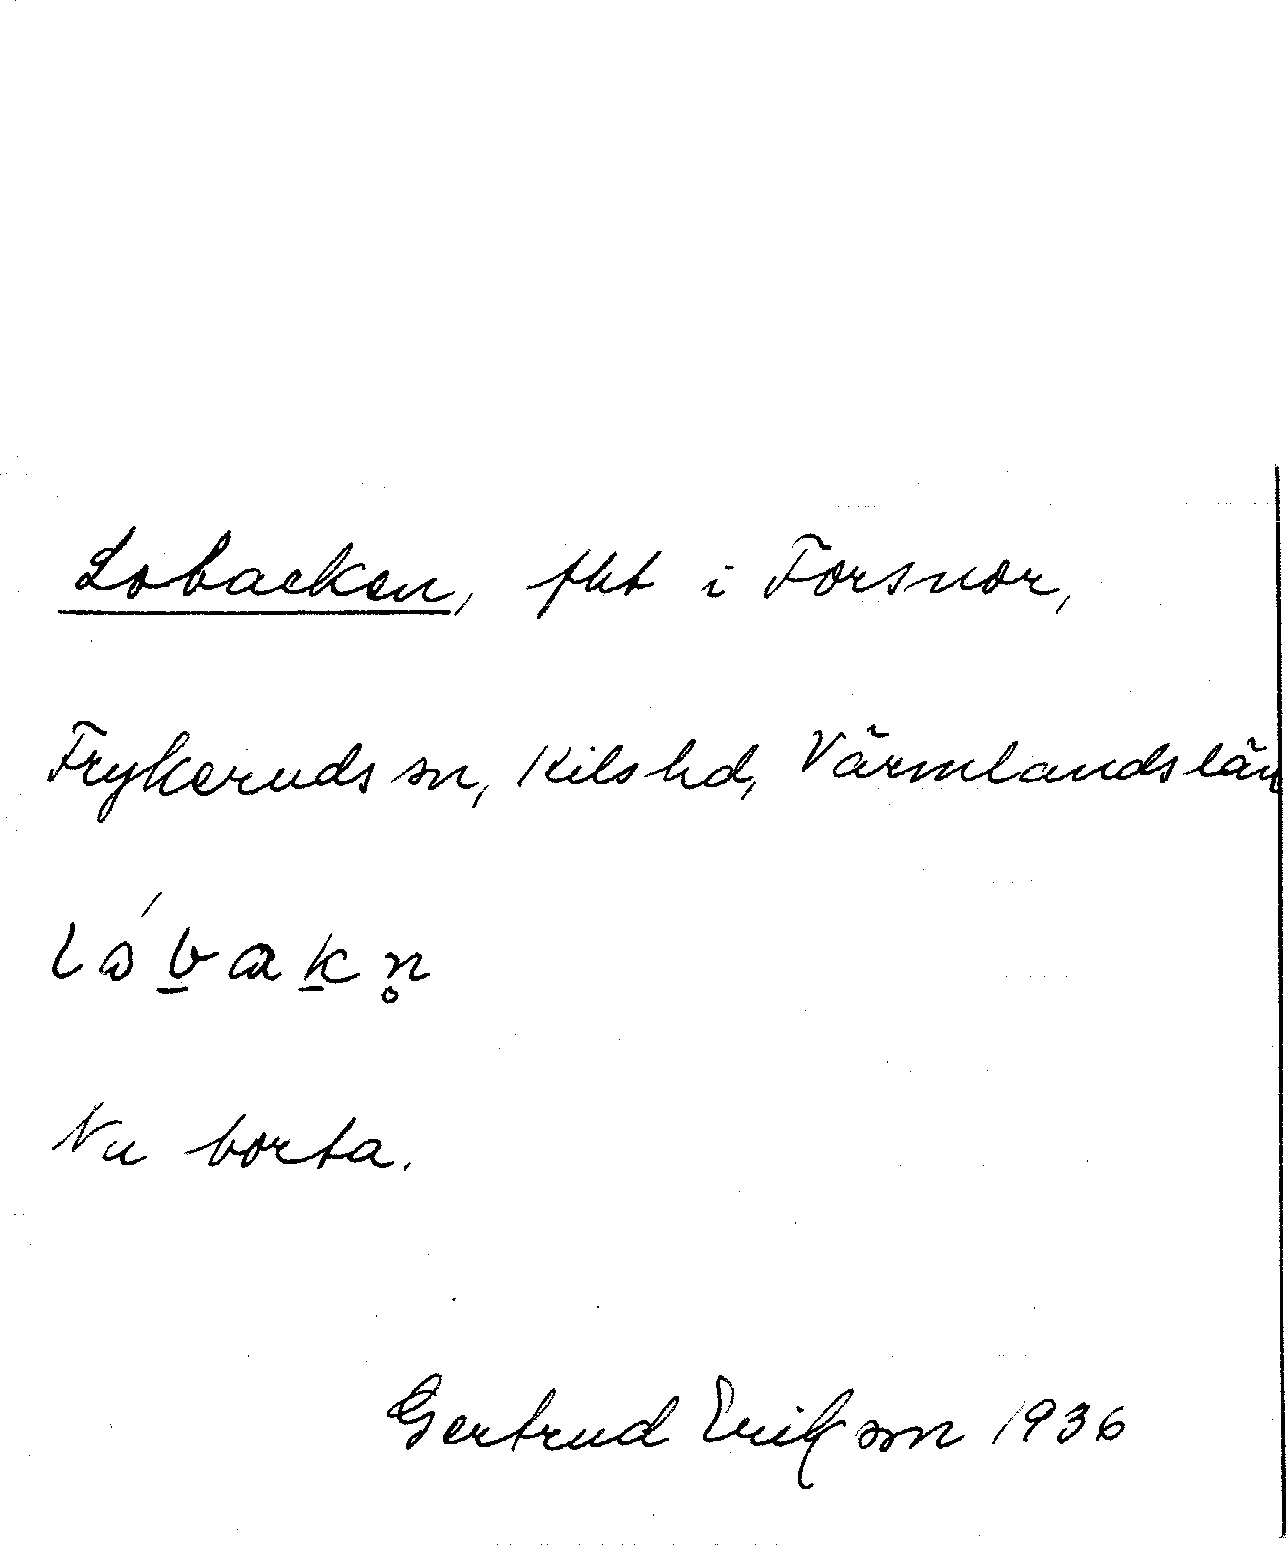 Lobacken, fht i Forsnor,
Frykeruds sn, Kils hd, Värmlands län
Nu borta.
Gertrud Erikson 1936